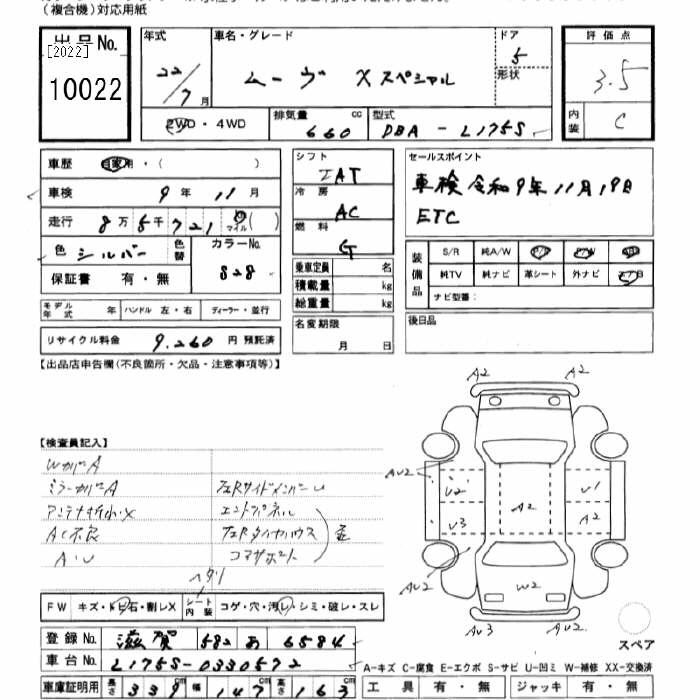 (複合機)対応用紙
出品No. [2022] 10022
年式 22/7月
車名・グレード ムーヴ Xスペシャル
ドア 5
形状
2WD・4WD
排気量 660 cc
型式 DBA-L175S
評価点 3.5
内装 C
車歴 自家用・( )
車検 9年 11月
走行 8万5千721 マイル( )
色 シルバー 色替
カラーNo. S28
保証書 有・無
モデル年式 年 ハンドル 左・右 ディーラー・並行
リサイクル料金 9.260 円 預託済
シフト IAT
冷房 AC
燃料 G
乗車定員 名
積載量 kg
総重量 kg
名変期限 月 日
セールスポイント
車検 令和9年11月19日
ETC
装備品 S/R 純A/W P/S P/W
純TV 純ナビ 革シート 外ナビ エアB
ナビ型番:
後日品
【出品店申告欄(不良箇所・欠品・注意事項等)】
【検査員記入】
WカバA
ミラーカバA
アンテナ折小・X
AC不良
A・U
左Rサイドメンバー U
エンドパネル
左Rタイヤハウス
コマサポート
A2 A2
AU2
U2 U1
A2
U3 A2
AU2 W2 AU2
AU3 A2
スペア
FW キズ・トビ石・割レX
シート内装 コゲ・穴・汚レ・シミ・破レ・スレ
登録No. 滋賀 582 あ 6584
車台No. L175S-0330572
車庫証明用 長さ 339cm 幅 147cm 高さ 163cm
A-キズ C-腐食 E-エクボ S-サビ U-凹ミ W-補修 XX-交換済
工具 有・無 ジャッキ 有・無